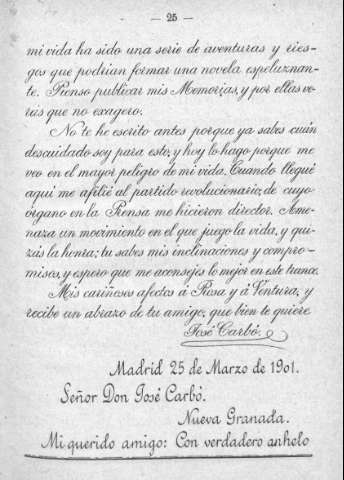 — 25 —
mi vida ha sido una serie de aventuras y ries-
gos que podrian formar una novela espeluznan-
te. Pienso publicar mis Memorias, y por ellas ve-
reis que no exagero.
No te he escrito antes porque ya sabes cuán
descuidado soy para esto, y hoy lo hago porque me
veo en el mayor peligro de mi vida. Cuando llegué
aqui me afilié al partido revolucionario, de cuyo
órgano en la Prensa me hicieron director. Ame-
naza un movimiento en el que juego la vida, y qui-
zás la honra; tu sabes mis inclinaciones y compro-
misos, y espero que me aconsejes lo mejor en este trance.
Mis cariñosos afectos á Rosa y á Ventura, y
recibe un abrazo de tu amigo, que bien te quiere
José Carbó.
Madrid 25 de Marzo de 1901.
Señor Don José Carbó.
Nueva Granada.
Mi querido amigo: Con verdadero anhelo